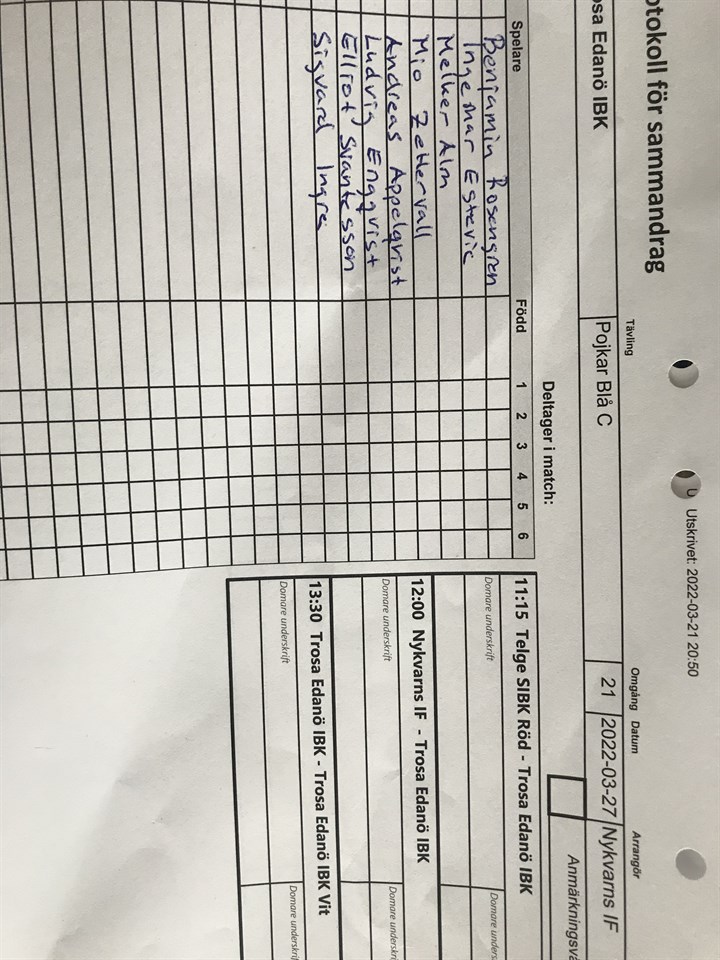 otokoll för sammandrag
U Utskrivet: 2022-03-21 20:50
Tävling Omgång Datum Arrangör
osa Edanö IBK Pojkar Blå C 21 2022-03-27 Nykvarns IF
Anmärkningsvä
Deltager i match:
Spelare Född 1 2 3 4 5 6
Benjamin Rosengren
Ingemar Estevic
Melker Alm
Mio Zettervall
Andreas Appelqvist
Ludvig Engqvist
Elliot Svantesson
Sigvard Ingre
11:15 Telge SIBK Röd - Trosa Edanö IBK
Domare underskrift Domare unders
12:00 Nykvarns IF - Trosa Edanö IBK
Domare underskrift Domare underskrif
13:30 Trosa Edanö IBK - Trosa Edanö IBK Vit
Domare underskrift Domare underskrif